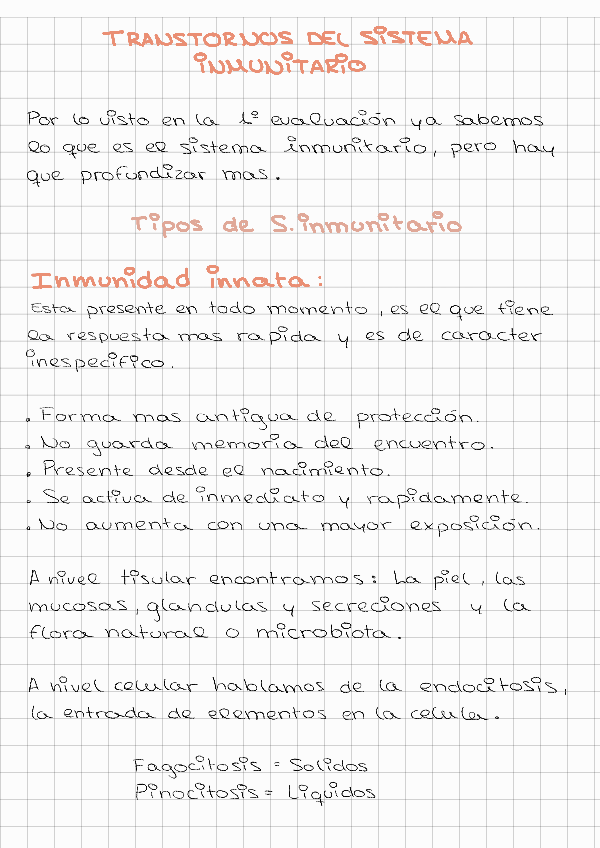 TRANSTORNOS DEL SISTEMA
INMUNITARIO
Por lo visto en la 1º evaluación ya sabemos
lo que es el sistema inmunitario, pero hay
que profundizar mas.
Tipos de S.inmunitario
Inmunidad innata:
Esta presente en todo momento, es el que tiene
la respuesta mas rapida y es de caracter
inespecifico.
. Forma mas antigua de protección.
. No guarda memoria del encuentro.
. Presente desde el nacimiento.
. Se activa de inmediato y rapidamente.
. No aumenta con una mayor exposición.
A nivel tisular encontramos: La piel, las
mucosas, glandulas y secreciones y la
flora natural o microbiota.
A nivel celular hablamos de la endocitosis,
la entrada de elementos en la celula.
Fagocitosis = Solidos
Pinocitosis = Liquidos